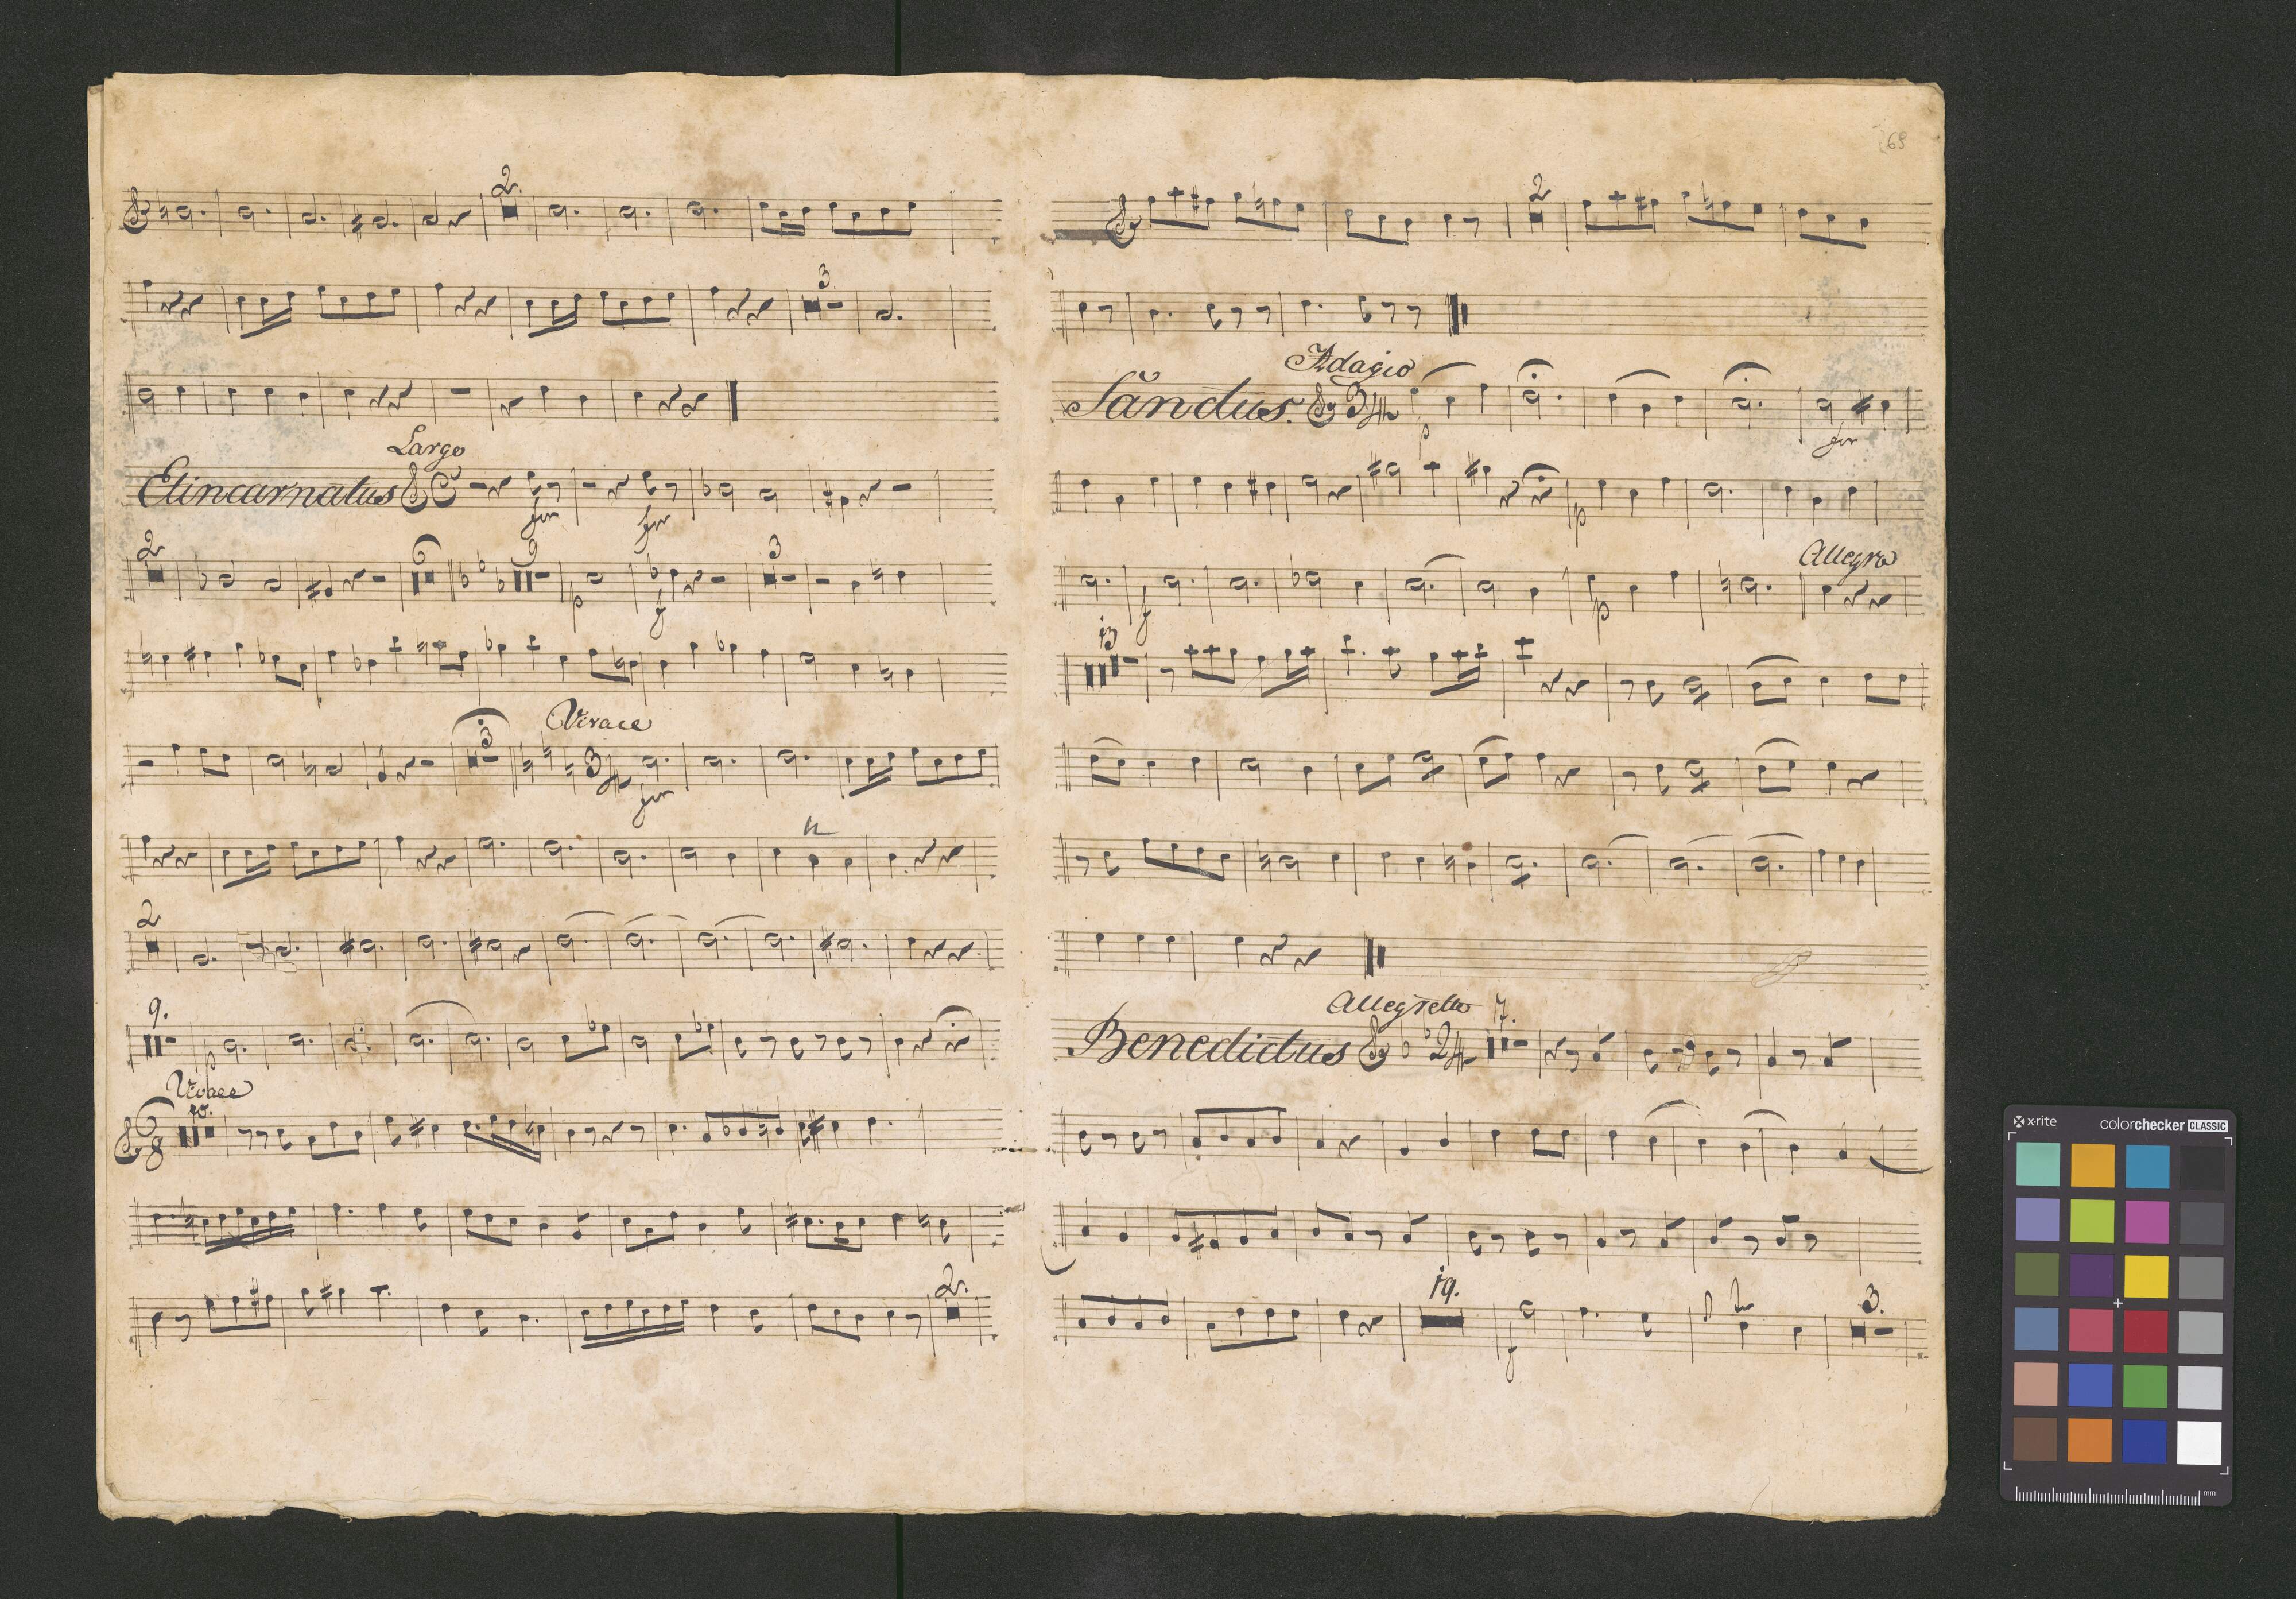 2.
3
Largo
Etincarnatus
for
for
2
6
9
3
p
f
Vivace
3
3
for
2
9.
p
Vivace
20.
6
8
2.
69
2
Adagio
Sanctus.
3
p
for
p
Allegro
f
p
13
Allegretto
7.
Benedictus
2
19.
f
3.
x-rite
colorchecker CLASSIC
mm